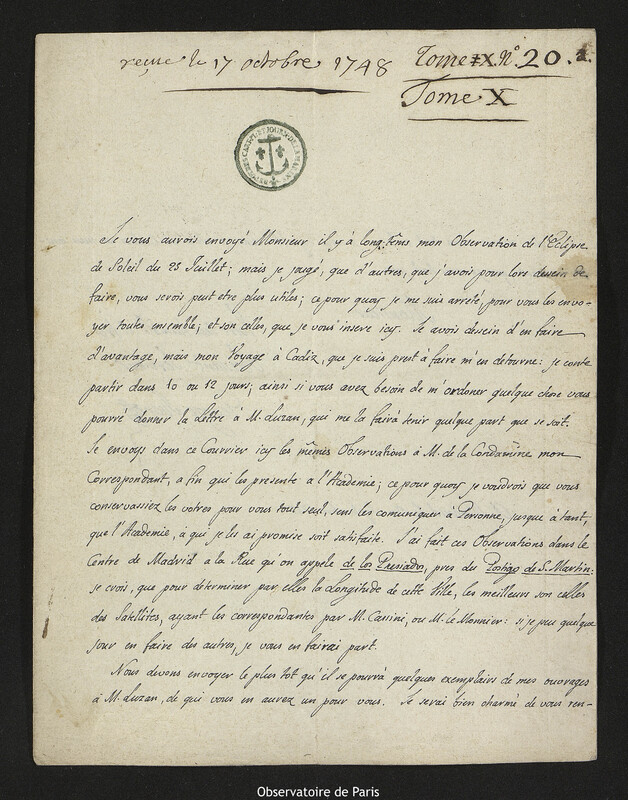 reçue le 17 octobre 1748 Tome IX. N.° 20. 1.
Tome X
Je vous aurois envoyé Monsieur il y à long.tëms mon Observation de l'Eclipse
de Soleil du 25 Juillet; mais je jougé, que d'autres, que j'avois pour lors dessein de
faire, vous serois peut etre plus utiles; ce pour quoy je me suis arreté, pour vous les envo-
yer toutes ensemble; et son celles, que je vous insere icy. Je avois dessein d'en faire
d'avantage, mais mon Voyage à Cadiz, que je suis prest à faire m'en detourne: je conte
partir dans 10 ou 12 jours; ainsi si vous avez besoin de m'ordoner quelque chose vous
pourré donner la Lettre à M. Luzan, qui me la fairà tenir quelque part que se soit.
Je envoys dans ce Courrier icy les mêmes Observations à M. de la Condamine mon
Correspondant, a fin qui les presente à l'Academie; ce pour quoy je voudrois que vous
conservassiez les votres pour vous tout seul, sens les comuniquer à Personne, jusque à tant,
que l'Academie, à qui je les ai promise soit satisfaite. J'ai fait ces Observations dans le
Centre de Madrid a la Rue qu'on appele de los Preciados, pres du Postigo de S. Martin:
je crois, que pour determiner par elles la Longitude de cette Ville, les meilleurs son celles
des Satellites, ayant les correspondantes par M. Cassini, ou M. le Monnier: si je peu quelque
jour en faire des autres, je vous en fairai part.
Nous devons envoyer le plus tot qu'il se pourrà quelques exemplairs de mes ouvrages
à M. Luzan, de qui vous en aurez un pour vous. Je serai bien charmé de vous ren-
Observatoire de Paris